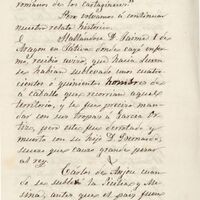 romanos de los cartagineses.
Pero volvamos á continuar
nuestro relato histórico.
Hallandose D. Jaime I de
Aragon en Játiva donde cayó enfer-
mo, recibió aviso, que hacia
se habian sublevado unos cuatro-
cientos ó quinientos hombres
á caballo que recorrian aquel
territorio, y le fue preciso man-
dar con sus tropas á Garcia Or-
tiz, pero este fue derrotado y
muerto con su hijo D. Bernardo,
suceso que causó grande pesar
al rey.
Carlos de Anjou cuan-
do se sublevó la Sicilia, y Me-
sina, antes que el país fuese